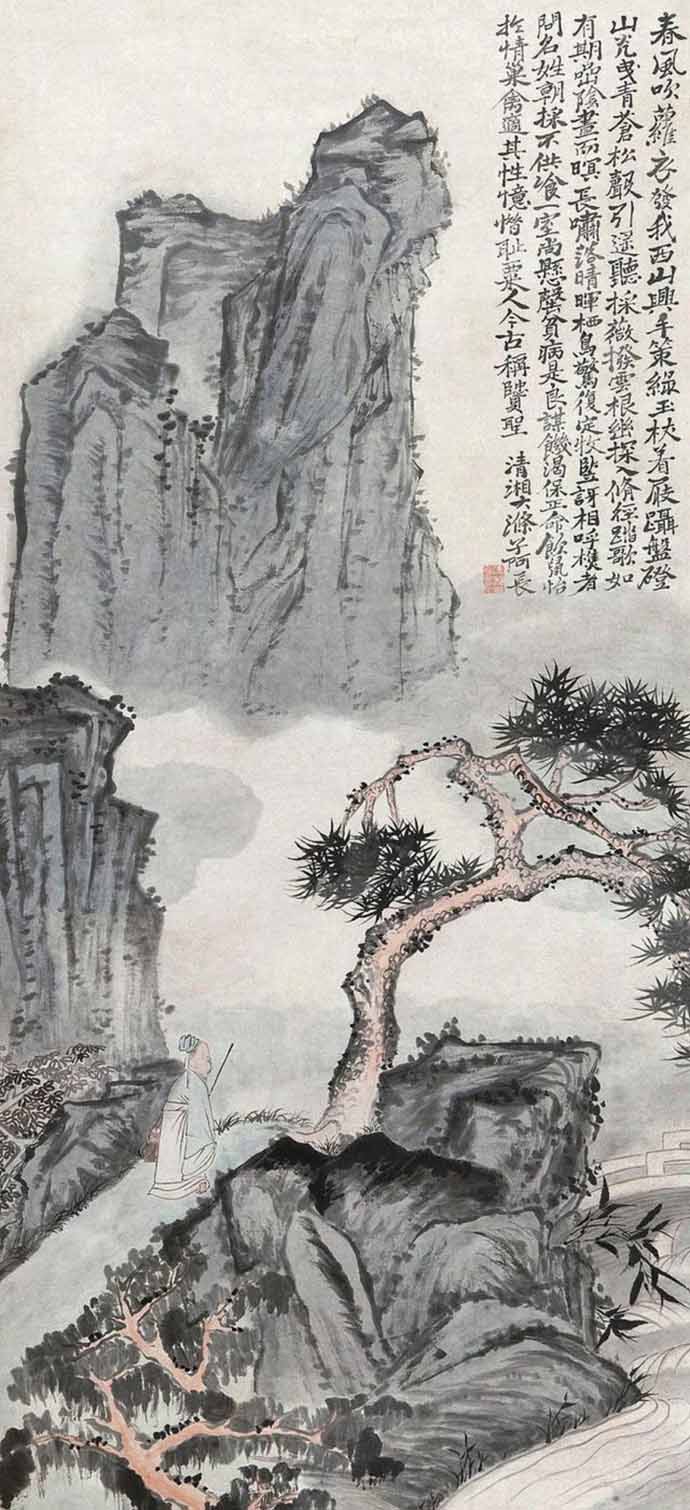 春風吹蘿衣發我西山興手策綠玉杖着屐躡盤磴
山光曳青蒼松聲引遥聽採薇撥雲根幽探入脩徑踏歌如
有期陰晝而暝長嘯落晴暉栖鳥驚復定牧豎訝相呼樵者
問名姓朝採不供飧一室尚懸罄貧病是良謀饑渴保正命怡
於情巢禽適其性憶惜耻粟人今古稱賢聖 清湘大滌子阿長